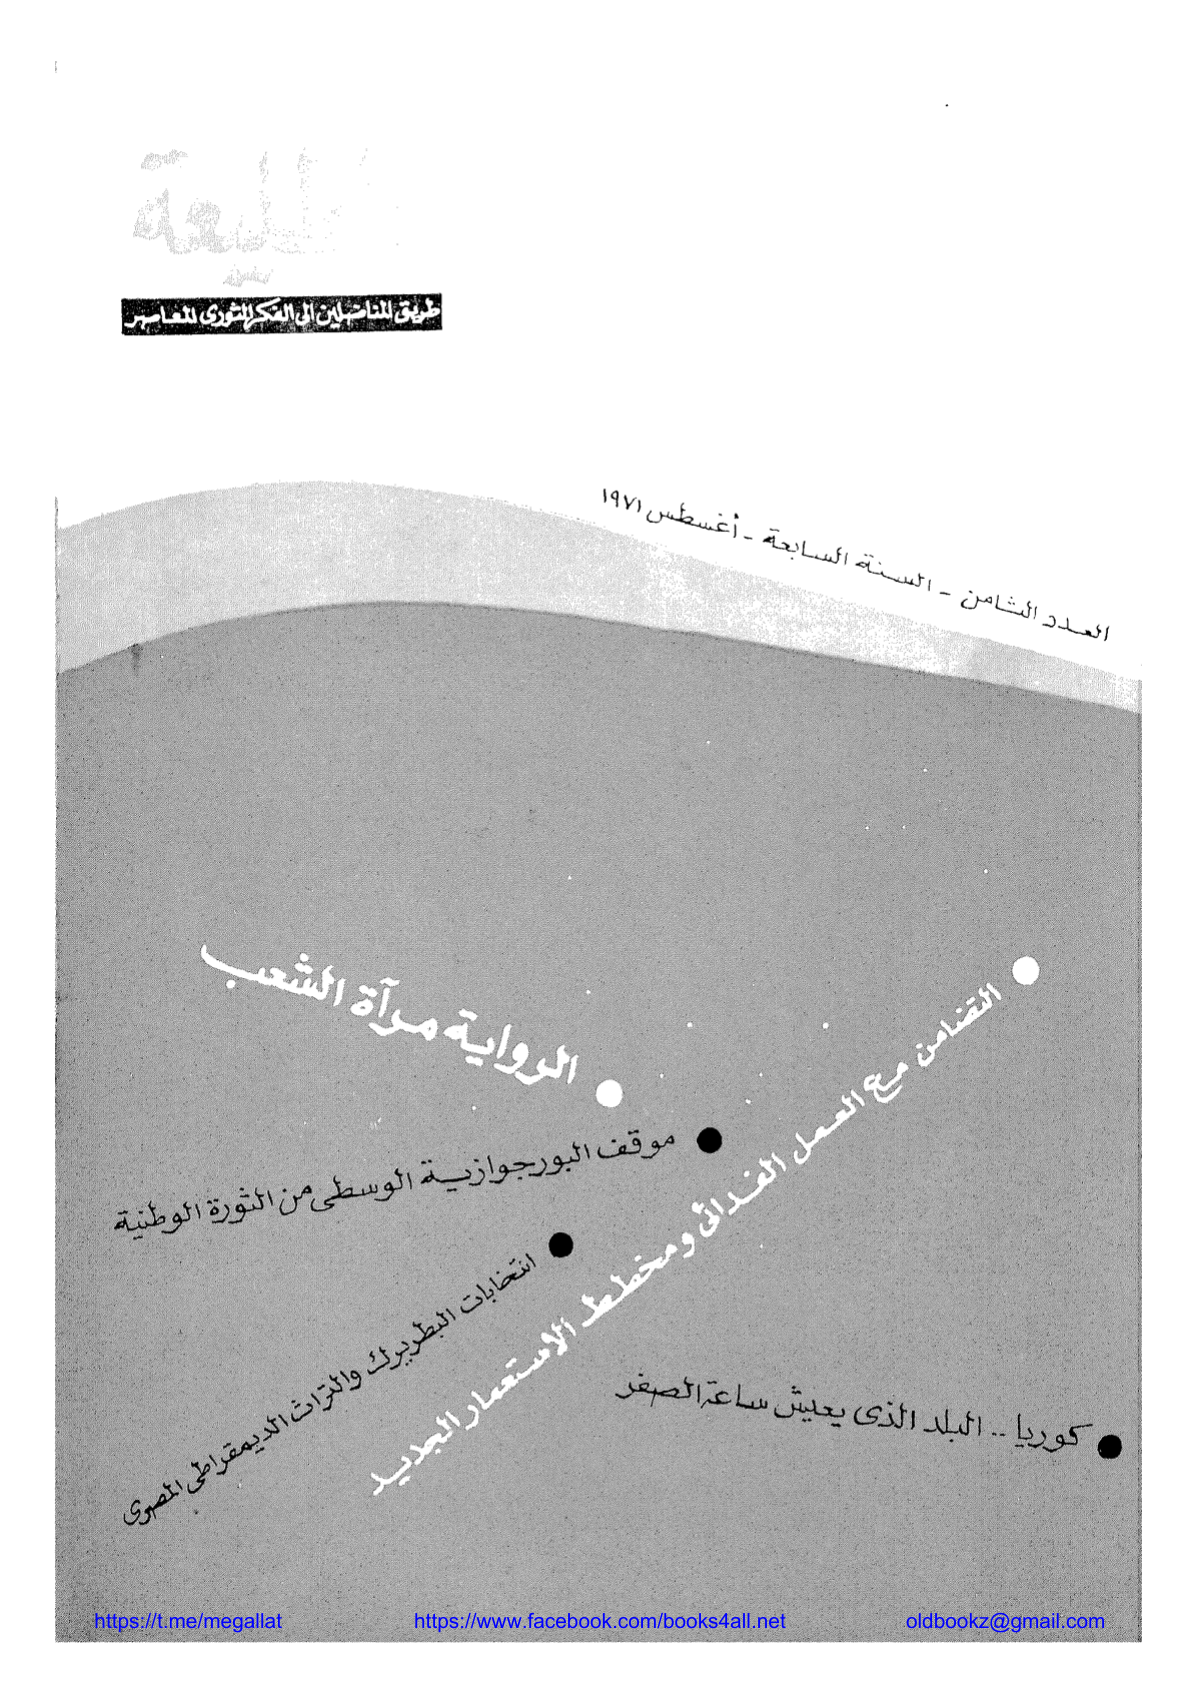 الطليعة
طريق المناضلين إلى الفكر الثورى المعاصر
العدد الثامن - السنة السابعة - أغسطس ١٩٧١
الرواية مرآة الشعب
التضامن مع العمل الفدائى ومخطط الاستعمار الجديد
موقف البورجوازية الوسطى من الثورة الوطنية
انتخابات البطريرك والتراث الديمقراطى المصرى
كوريا .. البلد الذى يعيش ساعة الصفر
https://t.me/megallat
https://www.facebook.com/books4all.net
oldbookz@gmail.com